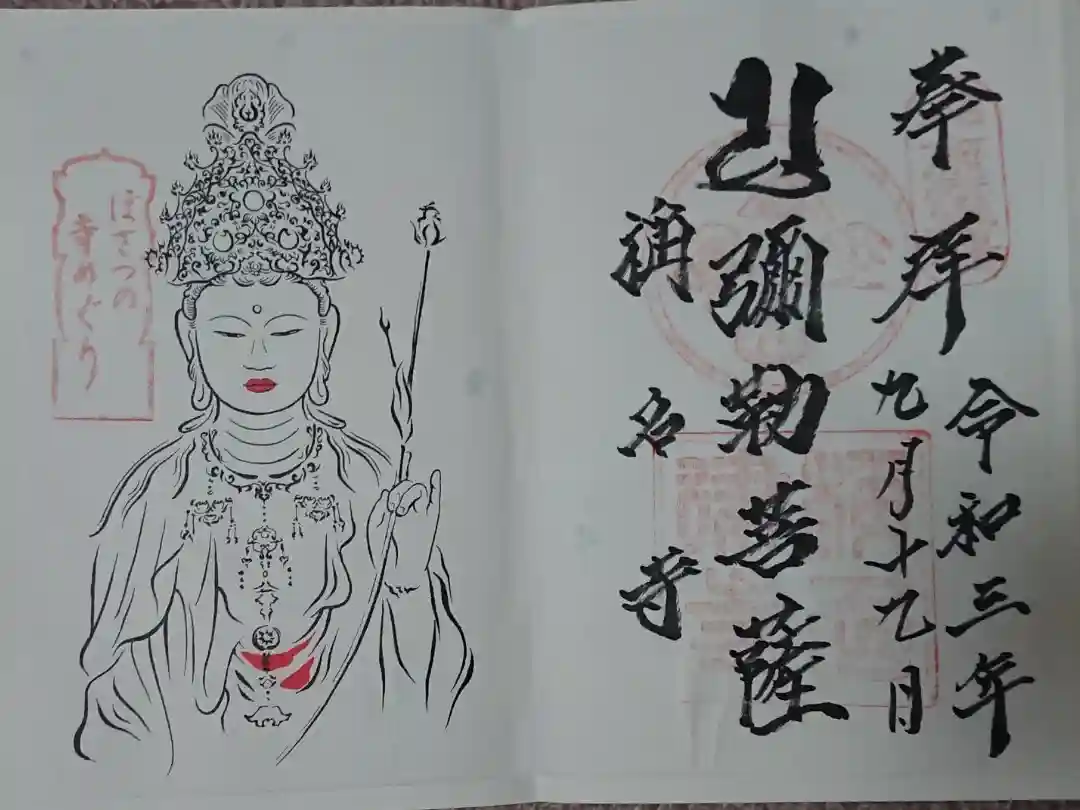 奉拝
令和三年
九月十九日
彌勒菩薩
称名寺
ぼさつの
寺めぐり